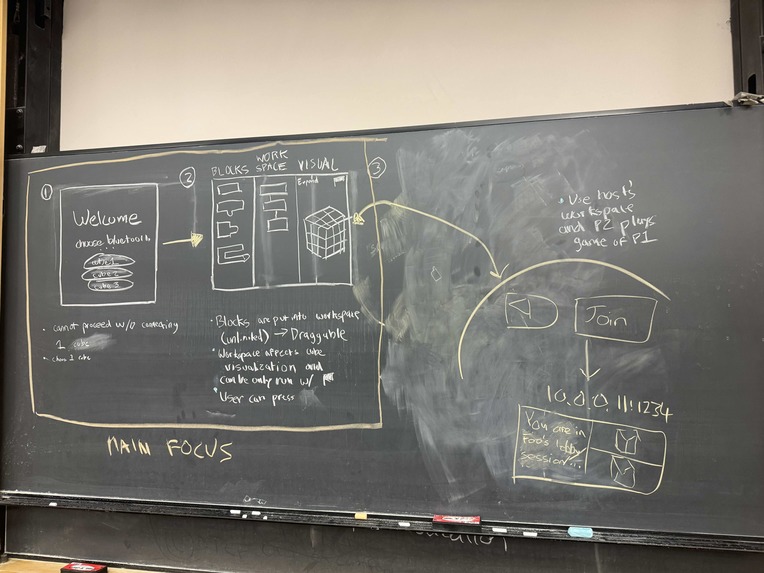 ①
Welcome
choose bluetooth
...
cube 2
cube 3
• cannot proceed w/o connecting
1 cube
②
BLOCKS WORK SPACE VISUAL
Expand
③
• Blocks are put into workspace
(unlimited) → Draggable
• Workspace affects cube
visualization and
can be only run w/
• User can press
MAIN FOCUS
• Use host's
workspace
and P2 plays
game of P1
Join
10.0.0.11:1234
You are in
Foo's lobby
session...